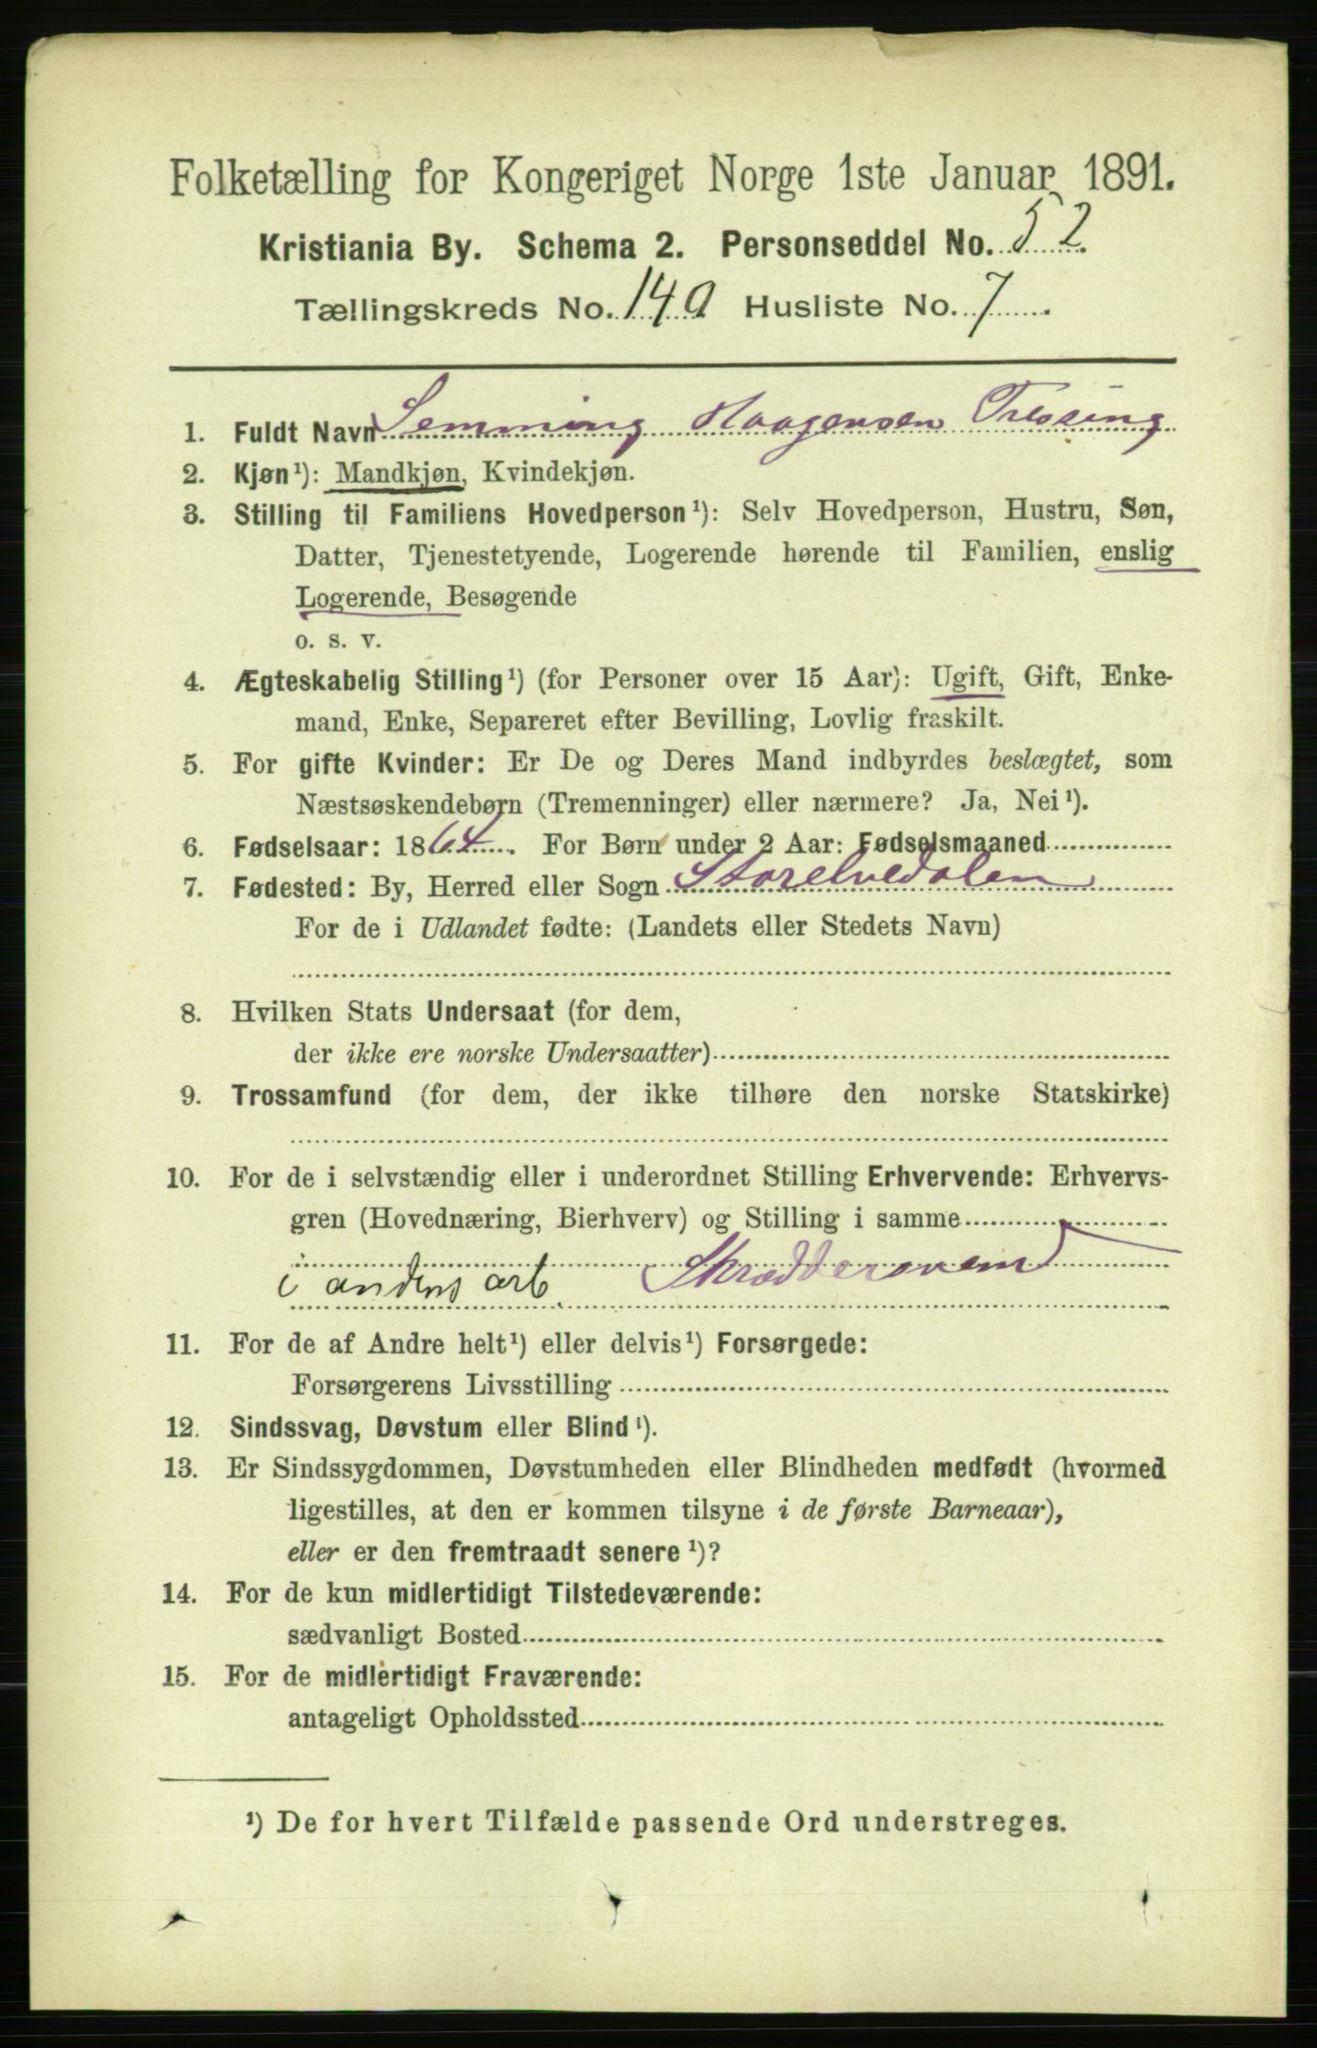 Folketælling for Kongeriget Norge 1ste Januar 1891.
Kristiania By. Schema 2. Personseddel No. 52.
Tællingskreds No. 149 Husliste No. 7.
1. Fuldt Navn Semming Haagensen Treseing
2. Kjøn¹): Mandkjøn, Kvindekjøn.
3. Stilling til Familiens Hovedperson¹): Selv Hovedperson, Hustru, Søn,
Datter, Tjenestetyende, Logerende hørende til Familien, enslig
Logerende, Besøgende
o. s. v.
4. Ægteskabelig Stilling¹) (for Personer over 15 Aar): Ugift, Gift, Enke-
mand, Enke, Separeret efter Bevilling, Lovlig fraskilt.
5. For gifte Kvinder: Er De og Deres Mand indbyrdes beslægtet, som
Næstsøskendebørn (Tremenninger) eller nærmere? Ja, Nei¹).
6. Fødselsaar: 1864. For Børn under 2 Aar: Fødselsmaaned
7. Fødested: By, Herred eller Sogn Storelvedalen
For de i Udlandet fødte: (Landets eller Stedets Navn)
8. Hvilken Stats Undersaat (for dem,
der ikke ere norske Undersaatter)
9. Trossamfund (for dem, der ikke tilhøre den norske Statskirke)
10. For de i selvstændig eller i underordnet Stilling Erhvervende: Erhvervs-
gren (Hovednæring, Bierhverv) og Stilling i samme
i andens arb. Skræddersvend
11. For de af Andre helt¹) eller delvis¹) Forsørgede:
Forsørgerens Livsstilling
12. Sindssvag, Døvstum eller Blind¹).
13. Er Sindssygdommen, Døvstumheden eller Blindheden medfødt (hvormed
ligestilles, at den er kommen tilsyne i de første Barneaar),
eller er den fremtraadt senere¹)?
14. For de kun midlertidigt Tilstedeværende:
sædvanligt Bosted
15. For de midlertidigt Fraværende:
antageligt Opholdssted
¹) De for hvert Tilfælde passende Ord understreges.